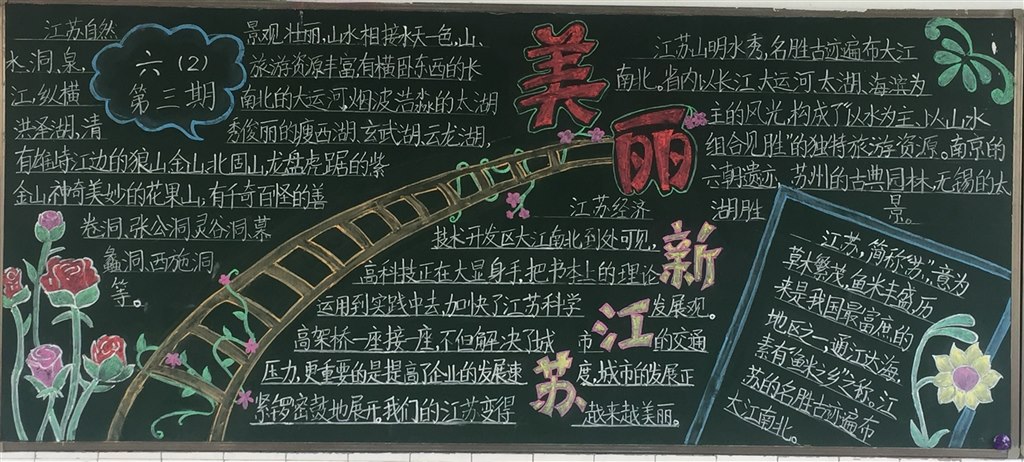 美丽新江苏
六（2）
第三期
江苏自然
景观壮丽，山水相接水天一色，山、
水、洞、泉，
旅游资源丰富，有横卧东西的长
江，纵横
南北的大运河，烟波浩淼的太湖
洪泽湖，清
秀俊丽的瘦西湖、玄武湖、云龙湖，
有雄峙江边的狼山、金山、北固山，龙盘虎踞的紫
金山，神奇美妙的花果山，有千奇百怪的善
卷洞、张公洞、灵谷洞、慕
蠡洞、西施洞
等。
江苏经济
技术开发区大江南北到处可见，
高科技正在大显身手，把书本上的理论
运用到实践中去，加快了江苏科学发展观。
高架桥一座接一座，不但解决了城市的交通
压力，更重要的是提高了企业的发展速度，城市的发展正
紧锣密鼓地展开。我们的江苏变得越来越美丽。
江苏山明水秀，名胜古迹遍布大江
南北。省内以长江、大运河、太湖、海滨为
主的风光，构成了“以水为主，以山水
组合见胜”的独特旅游资源。南京的
六朝遗迹、苏州的古典园林、无锡的太
湖胜景。
江苏，简称“苏”，意为
草木繁茂，鱼米丰盛，历
来是我国最富庶的
地区之一，通江大海，
素有“鱼米之乡”之称。江
苏的名胜古迹遍布
大江南北。